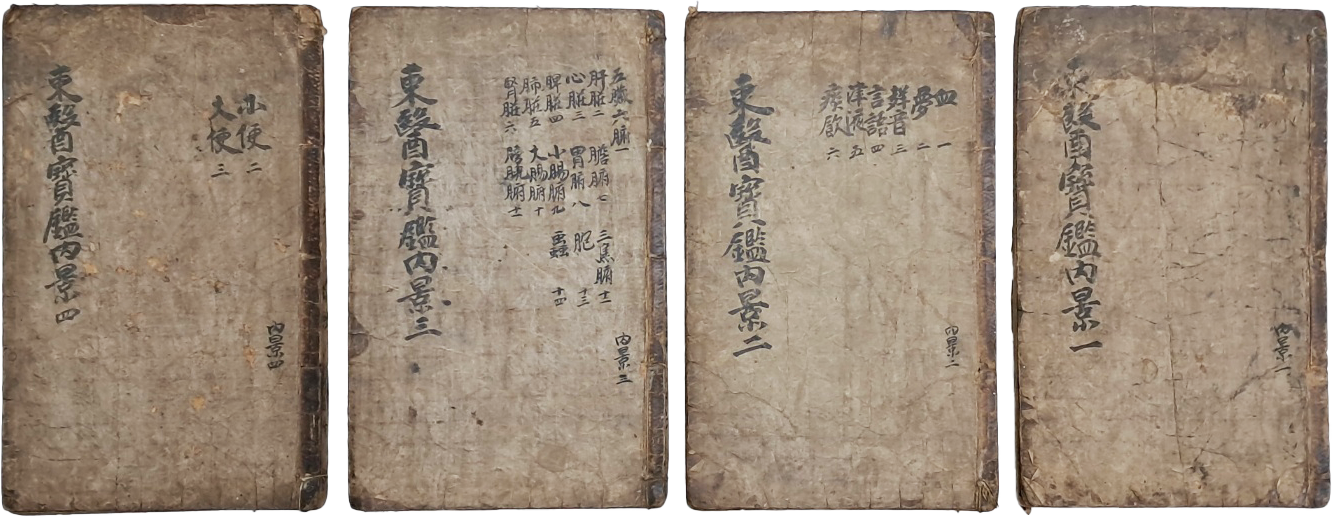 内景一
東醫寶鑑内景一
血一
夢二
聲音三
言語四
津液五
痰飮六
内景二
東醫寶鑑内景二
五臟六腑一
肝臟二 膽腑七 三焦腑十二
心臟三 胃腑八 胞十三
脾臟四 小腸腑九 蟲十四
肺臟五 大腸腑十
腎臟六 膀胱腑十一
内景三
東醫寶鑑内景三
小便二
大便三
内景四
東醫寶鑑内景四